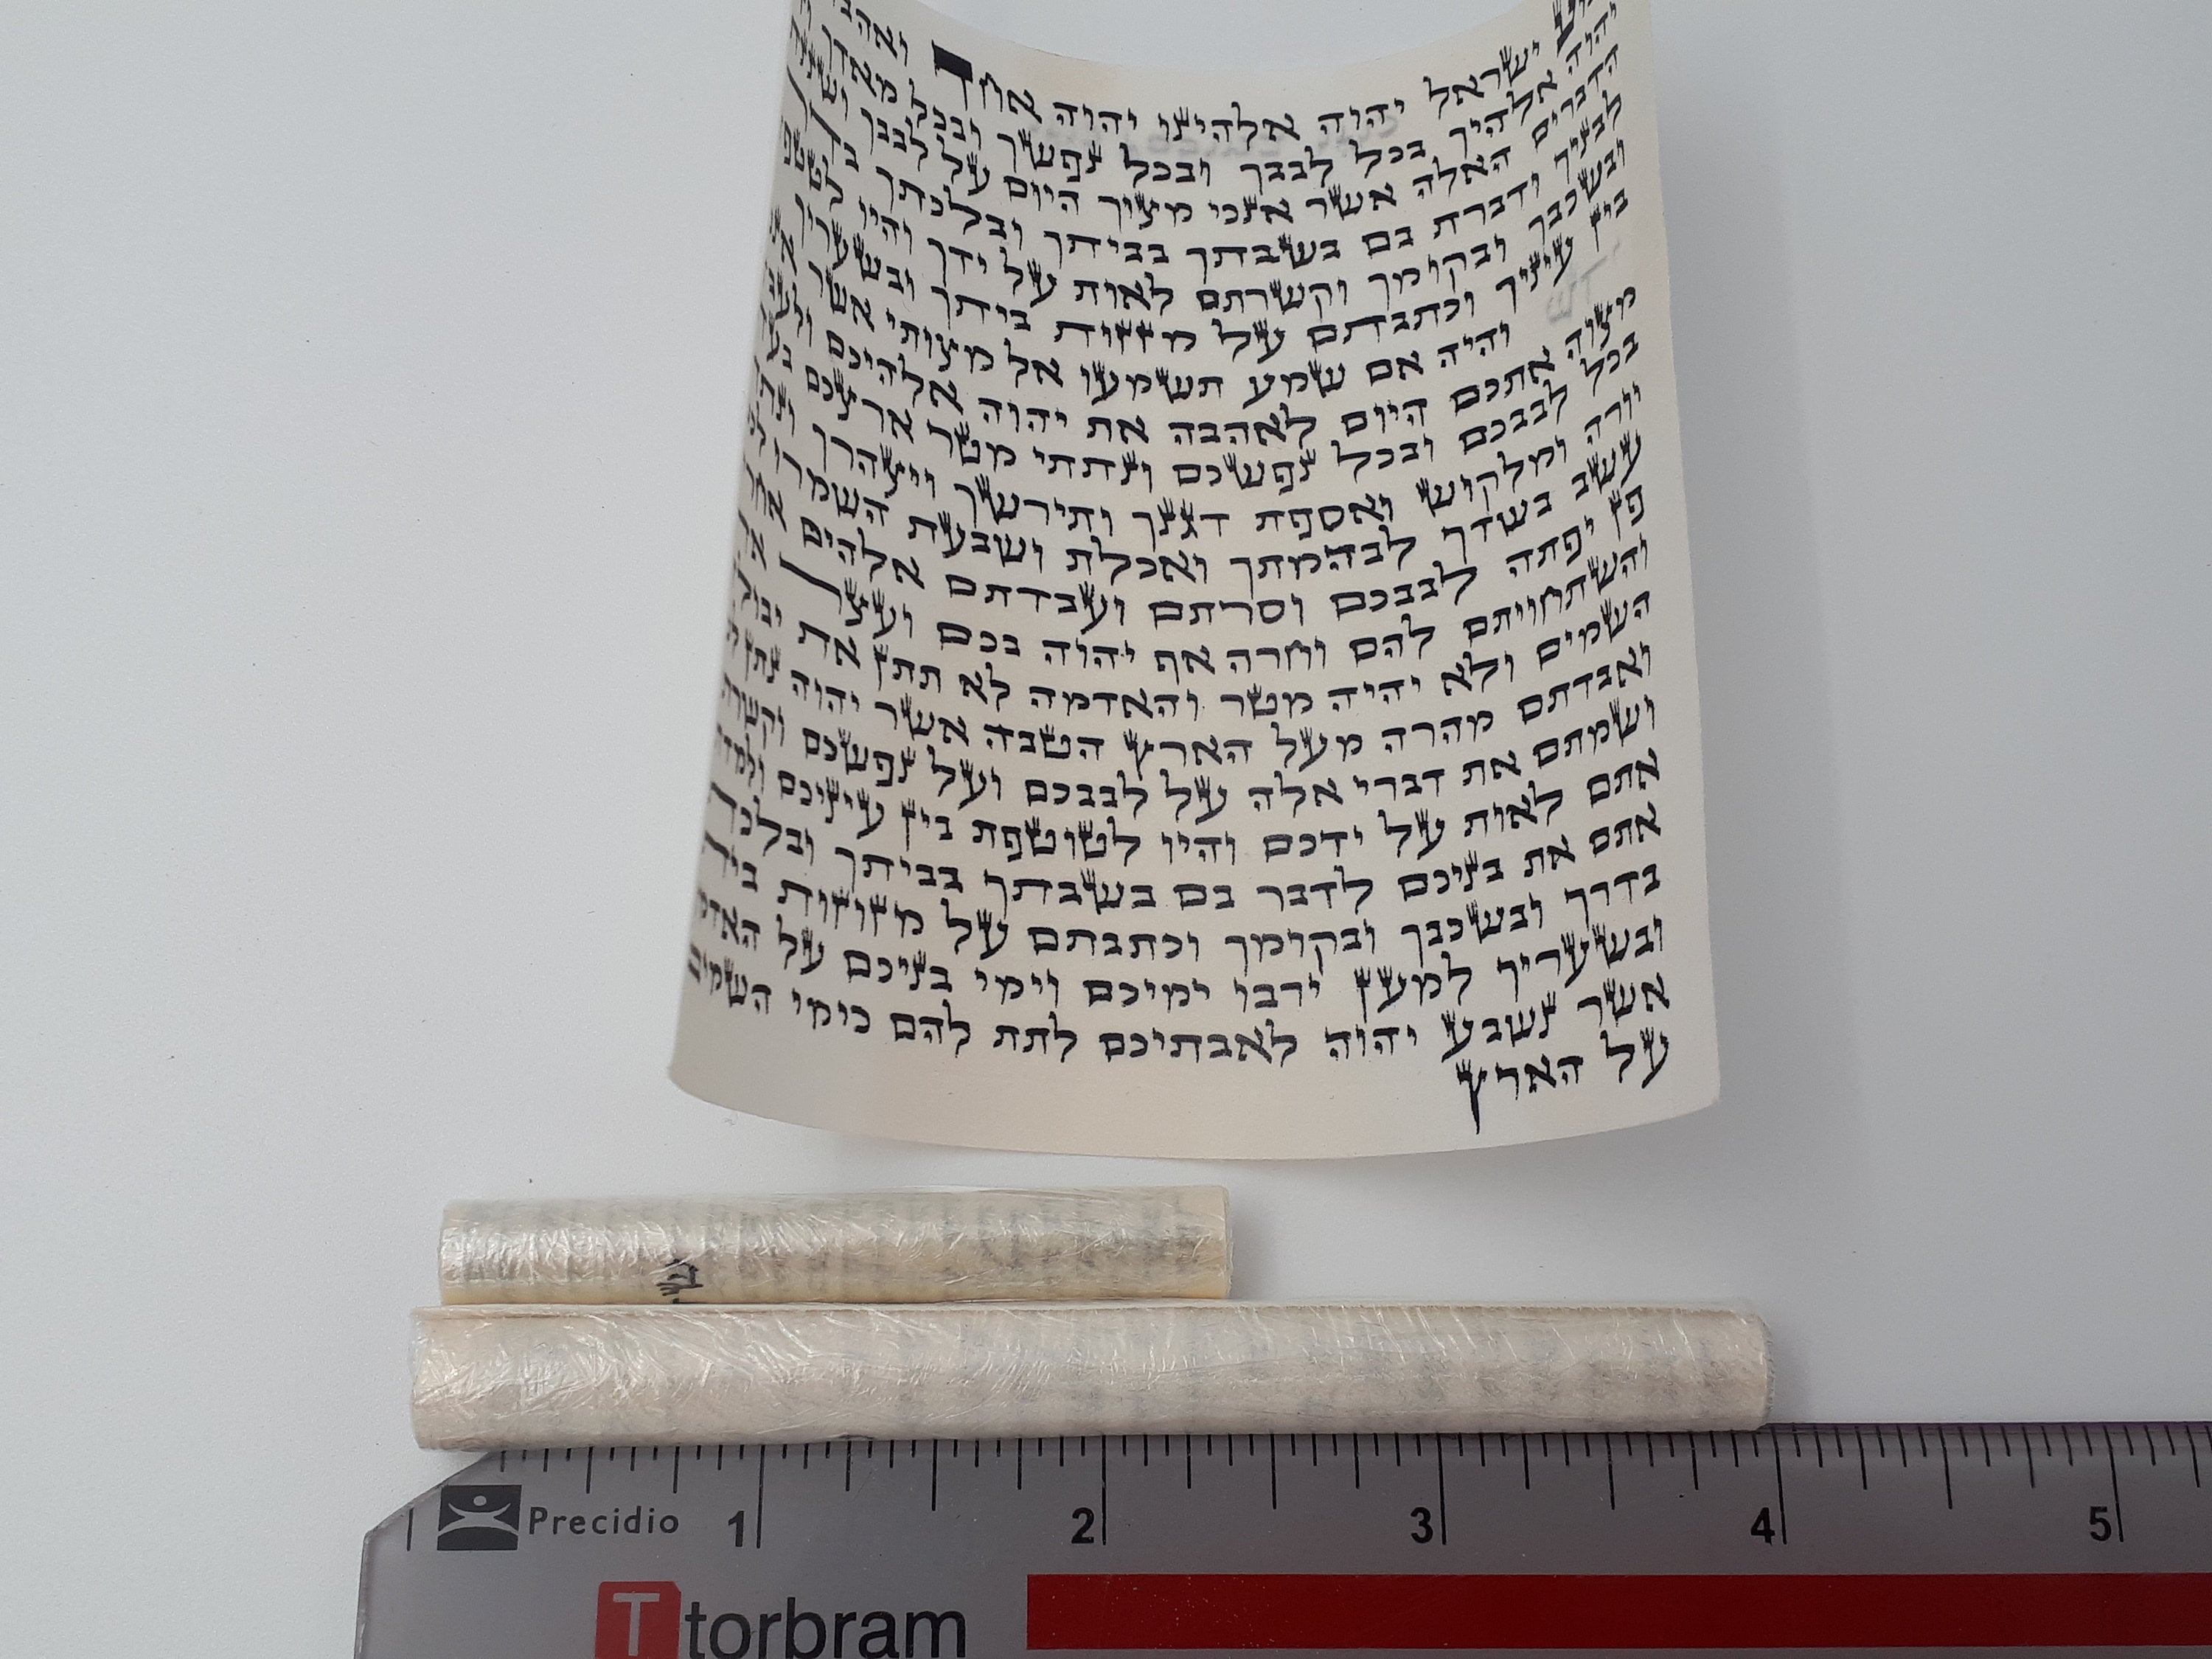 ישראל יהוה אלהינו יהוה אחד
יהוה אלהיך בכל לבבך ובכל נפשך ובכל מאדך
הדברים האלה אשר אנכי מצוך היום על לבבך
לבניך ודברת בם בשבתך בביתך ובלכתך
ובשכבך ובקומך וקשרתם לאות על ידך והיו לטטפת
בין עיניך וכתבתם על מזזות ביתך ובשעריך
והיה אם שמע תשמעו אל מצותי אשר
מצוה אתכם היום לאהבה את יהוה אלהיכם
בכל לבבכם ובכל נפשכם ונתתי מטר ארצכם
יורה ומלקוש ואספת דגנך ותירשך ויצהרך
עשב בשדך לבהמתך ואכלת ושבעת השמרו
פן יפתה לבבכם וסרתם ועבדתם אלהים
והשתחויתם להם וחרה אף יהוה בכם ועצר
השמים ולא יהיה מטר והאדמה לא תתן את
ואבדתם מהרה מעל הארץ הטבה אשר יהוה נתן
ושמתם את דברי אלה על לבבכם ועל נפשכם
אתם לאות על ידכם והיו לטוטפת בין עיניכם
אתם את בניכם לדבר בם בשבתך בביתך
בדרך ובשכבך ובקומך וכתבתם על מזוזות
ובשעריך למען ירבו ימיכם וימי בניכם על
אשר נשבע יהוה לאבתיכם לתת להם כימי השמים
על הארץ
1 2 3 4 5
Precidio
T torbram